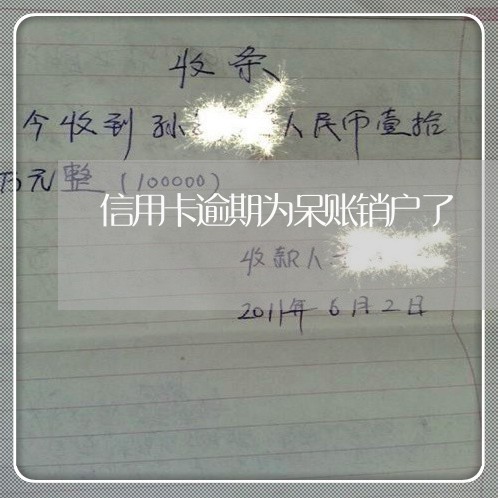 收条
今收到孙 人民币壹拾
万元整(100000)
信用卡逾期为呆账销户了
收款人
2011年6月2日